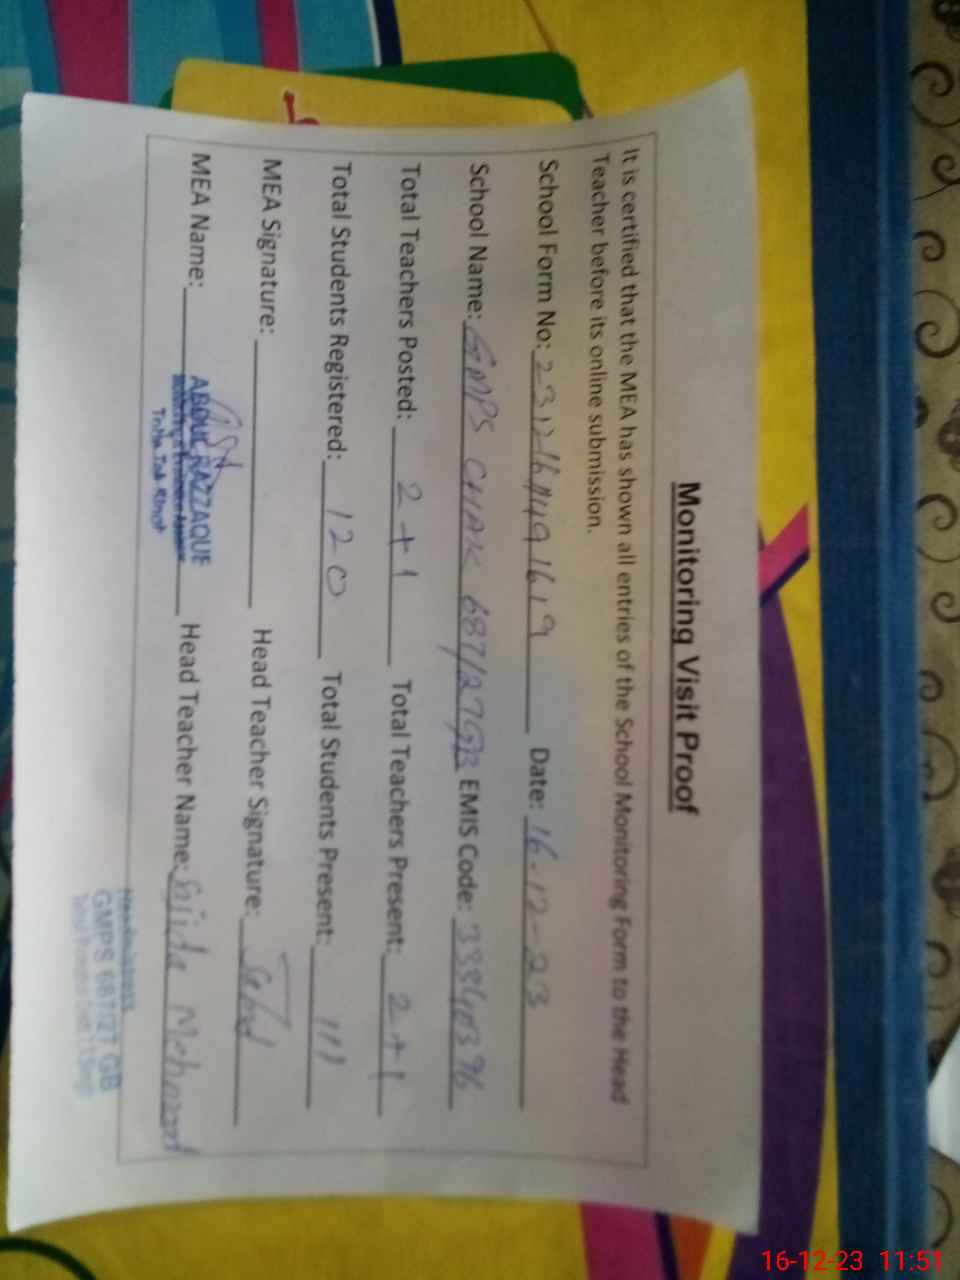 Monitoring Visit Proof
It is certified that the MEA has shown all entries of the School Monitoring Form to the Head
Teacher before its online submission.
School Form No: Date: 16-12-23
School Name: GMPS CHAK 687/27GB EMIS Code:
Total Teachers Posted: 2+1 Total Teachers Present: 2+1
Total Students Registered: 120 Total Students Present: 111
MEA Signature: Head Teacher Signature:
MEA Name: ABDUL RAZZAQUE Head Teacher Name:
Headmistress
GMPS 687/27 GB
16-12-23 11:51